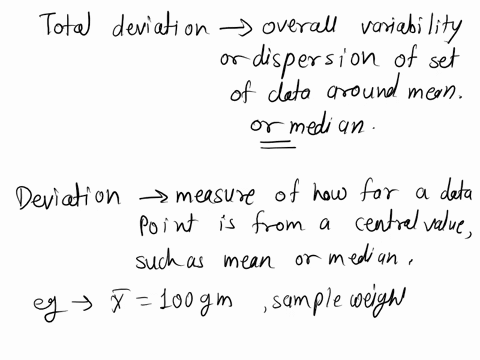 Total deviation → overall variability
or dispersion of set
of data around mean.
or median.
Deviation → measure of how for a data
Point is from a central value,
such as mean or median.
eg → x̄ = 100 gm , sample weight